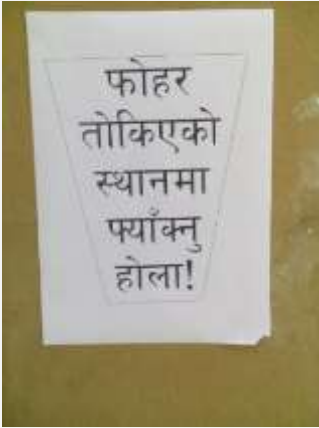 फोहर
तोकिएको
स्थानमा
फ्याँक्नु
होला!